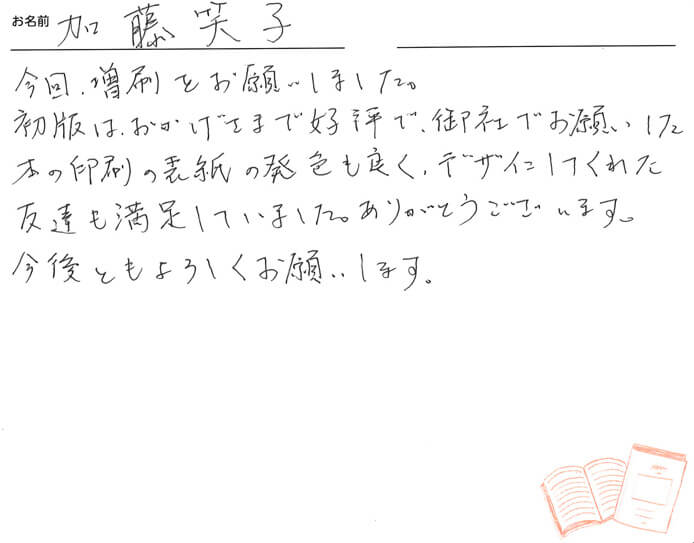 お名前 加藤笑子
今回、増刷をお願いしました。
初版は、おかげさまで好評で、御社でお願いした
本の印刷の表紙の発色も良く、デザインしてくれた
友達も満足していました。ありがとうございます。
今後ともよろしくお願いします。